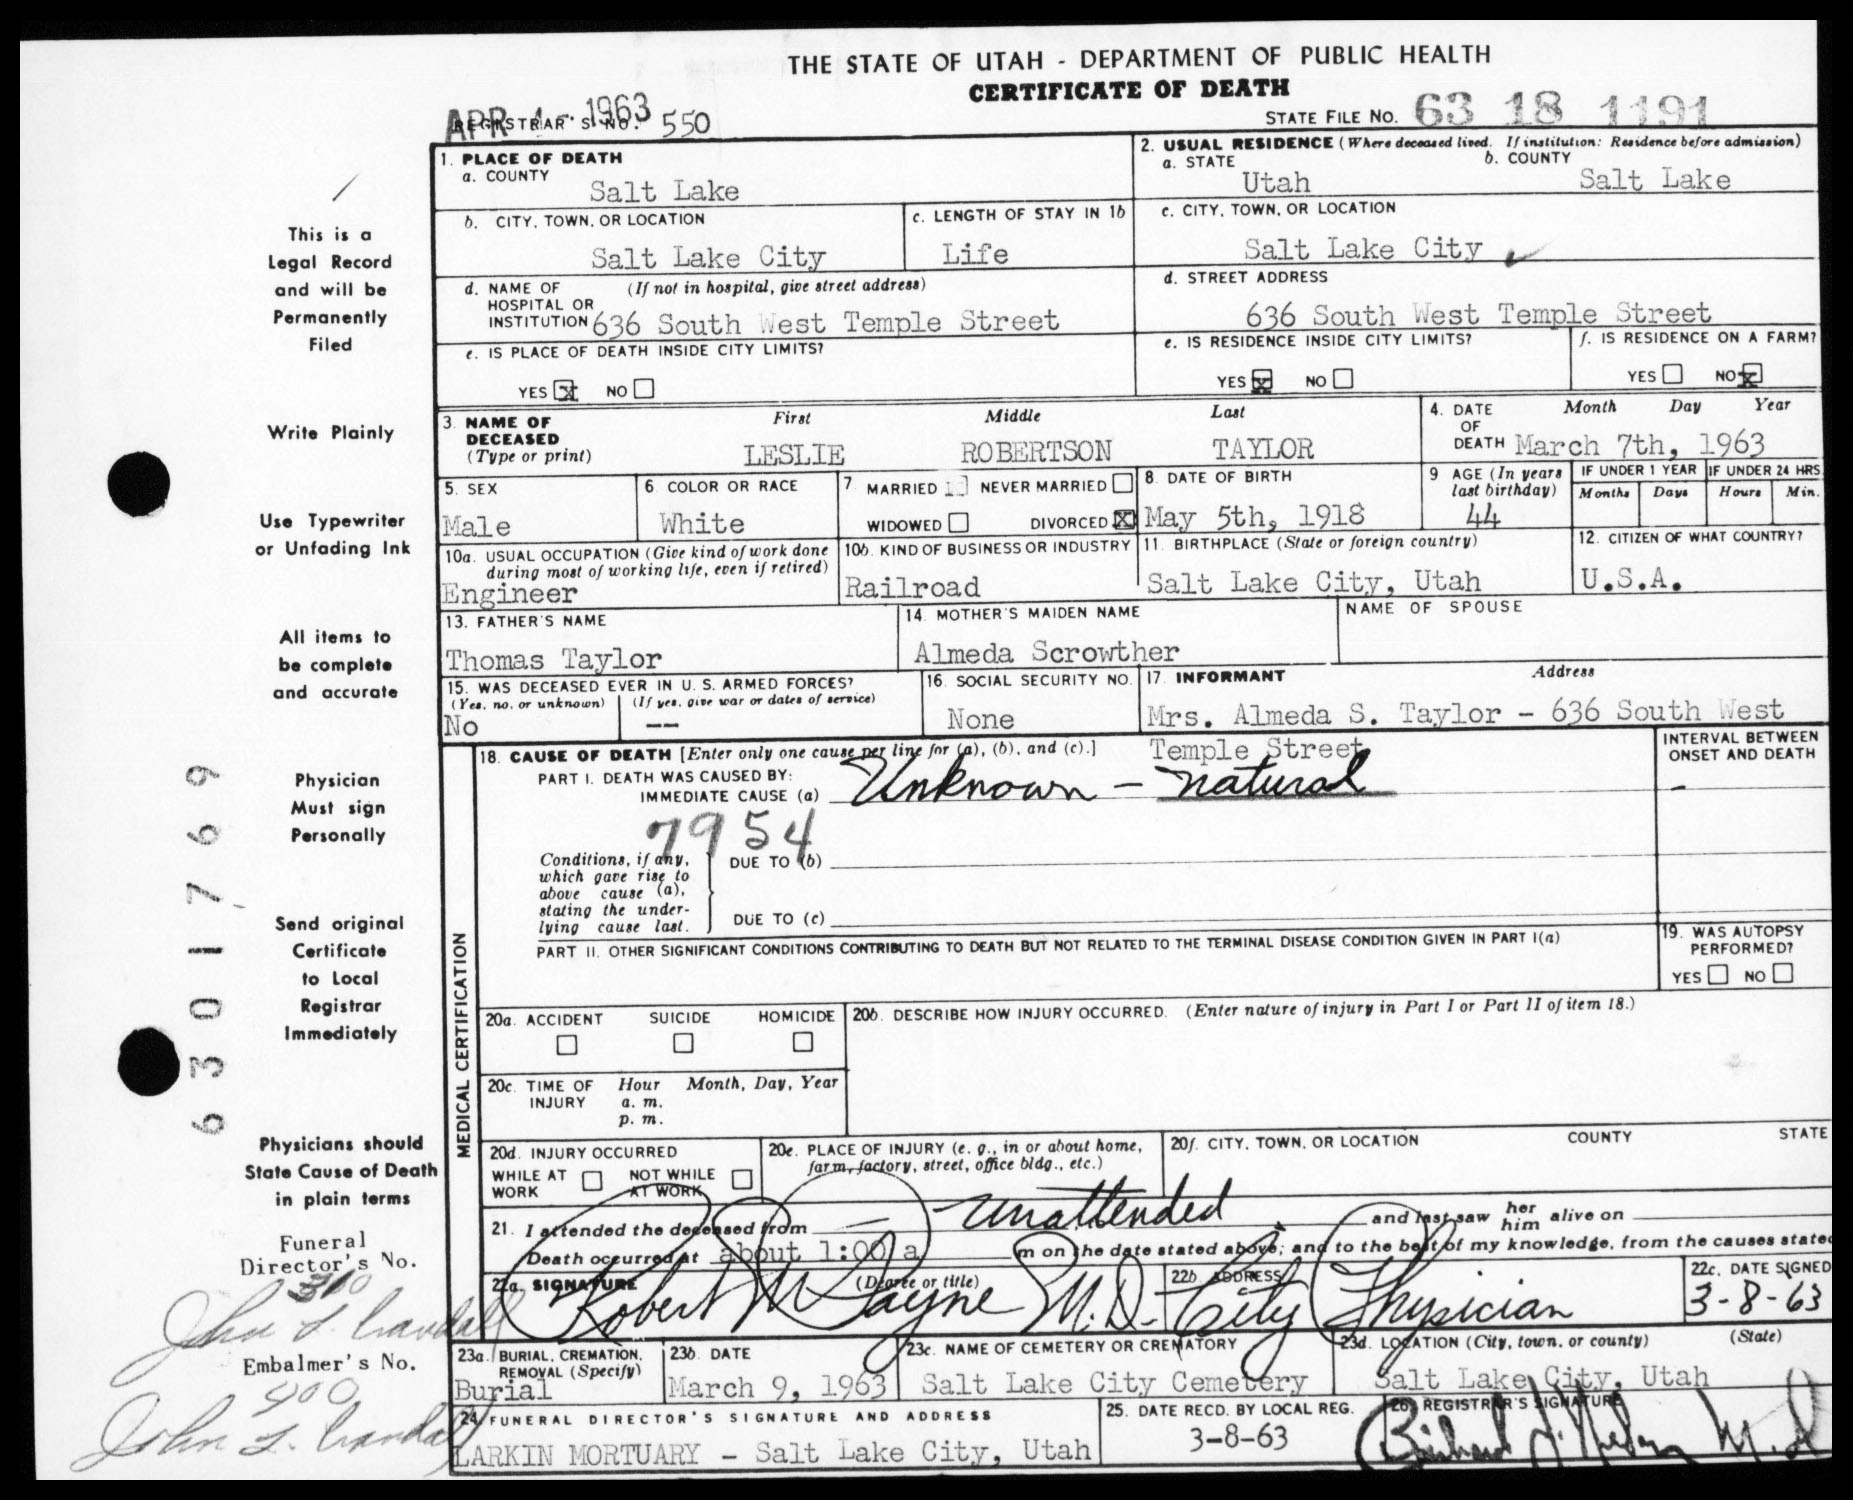 THE STATE OF UTAH - DEPARTMENT OF PUBLIC HEALTH
CERTIFICATE OF DEATH
APR 4 - 1963
REGISTRAR'S NO. 550
STATE FILE NO. 63 18 1191
1. PLACE OF DEATH
a. COUNTY
Salt Lake
2. USUAL RESIDENCE (Where deceased lived. If institution: Residence before admission)
a. STATE b. COUNTY
Utah Salt Lake
b. CITY, TOWN, OR LOCATION
Salt Lake City
c. LENGTH OF STAY IN 1b
Life
c. CITY, TOWN, OR LOCATION
Salt Lake City
d. NAME OF (If not in hospital, give street address)
HOSPITAL OR
INSTITUTION 636 South West Temple Street
d. STREET ADDRESS
636 South West Temple Street
e. IS PLACE OF DEATH INSIDE CITY LIMITS?
YES X NO
e. IS RESIDENCE INSIDE CITY LIMITS?
YES X NO
f. IS RESIDENCE ON A FARM?
YES NO X
3. NAME OF DECEASED (Type or print)
First Middle Last
LESLIE ROBERTSON TAYLOR
4. DATE OF DEATH
Month Day Year
March 7th, 1963
5. SEX
Male
6. COLOR OR RACE
White
7. MARRIED NEVER MARRIED
WIDOWED DIVORCED X
8. DATE OF BIRTH
May 5th, 1918
9 AGE (In years last birthday)
44
IF UNDER 1 YEAR
Months Days
IF UNDER 24 HRS.
Hours Min.
10a. USUAL OCCUPATION (Give kind of work done
during most of working life, even if retired)
Engineer
10b. KIND OF BUSINESS OR INDUSTRY
Railroad
11. BIRTHPLACE (State or foreign country)
Salt Lake City, Utah
12. CITIZEN OF WHAT COUNTRY?
U.S.A.
13. FATHER'S NAME
Thomas Taylor
14. MOTHER'S MAIDEN NAME
Almeda Scrowther
NAME OF SPOUSE
15. WAS DECEASED EVER IN U. S. ARMED FORCES?
(Yes, no, or unknown) (If yes, give war or dates of service)
No --
16. SOCIAL SECURITY NO.
None
17. INFORMANT Address
Mrs. Almeda S. Taylor - 636 South West
Temple Street
18. CAUSE OF DEATH [Enter only one cause per line for (a), (b), and (c).]
PART I. DEATH WAS CAUSED BY:
IMMEDIATE CAUSE (a) Unknown - natural
7954
Conditions, if any,
which gave rise to
above cause (a),
stating the under-
lying cause last.
DUE TO (b)
DUE TO (c)
INTERVAL BETWEEN
ONSET AND DEATH
-
PART II. OTHER SIGNIFICANT CONDITIONS CONTRIBUTING TO DEATH BUT NOT RELATED TO THE TERMINAL DISEASE CONDITION GIVEN IN PART I(a)
19. WAS AUTOPSY
PERFORMED?
YES NO
MEDICAL CERTIFICATION
20a. ACCIDENT SUICIDE HOMICIDE
20b. DESCRIBE HOW INJURY OCCURRED. (Enter nature of injury in Part I or Part II of item 18.)
20c. TIME OF INJURY
Hour Month, Day, Year
a. m.
p. m.
20d. INJURY OCCURRED
WHILE AT WORK NOT WHILE AT WORK
20e. PLACE OF INJURY (e. g., in or about home,
farm, factory, street, office bldg., etc.)
20f. CITY, TOWN, OR LOCATION COUNTY STATE
21. I attended the deceased from — unattended and last saw her him alive on
Death occurred at about 1:00 a m on the date stated above; and to the best of my knowledge, from the causes stated
22a. SIGNATURE (Degree or title)
Robert W Payne M.D.
22b. ADDRESS
City Physician
22c. DATE SIGNED
3-8-63
23a. BURIAL, CREMATION,
REMOVAL (Specify)
Burial
23b. DATE
March 9, 1963
23c. NAME OF CEMETERY OR CREMATORY
Salt Lake City Cemetery
23d. LOCATION (City, town, or county) (State)
Salt Lake City, Utah
24. FUNERAL DIRECTOR'S SIGNATURE AND ADDRESS
LARKIN MORTUARY - Salt Lake City, Utah
25. DATE RECD. BY LOCAL REG.
3-8-63
26. REGISTRAR'S SIGNATURE
This is a
Legal Record
and will be
Permanently
Filed
Write Plainly
Use Typewriter
or Unfading Ink
All items to
be complete
and accurate
Physician
Must sign
Personally
Send original
Certificate
to Local
Registrar
Immediately
Physicians should
State Cause of Death
in plain terms
6301769
Funeral
Director's No.
John L. Crandall
Embalmer's No.
400
John L. Crandall